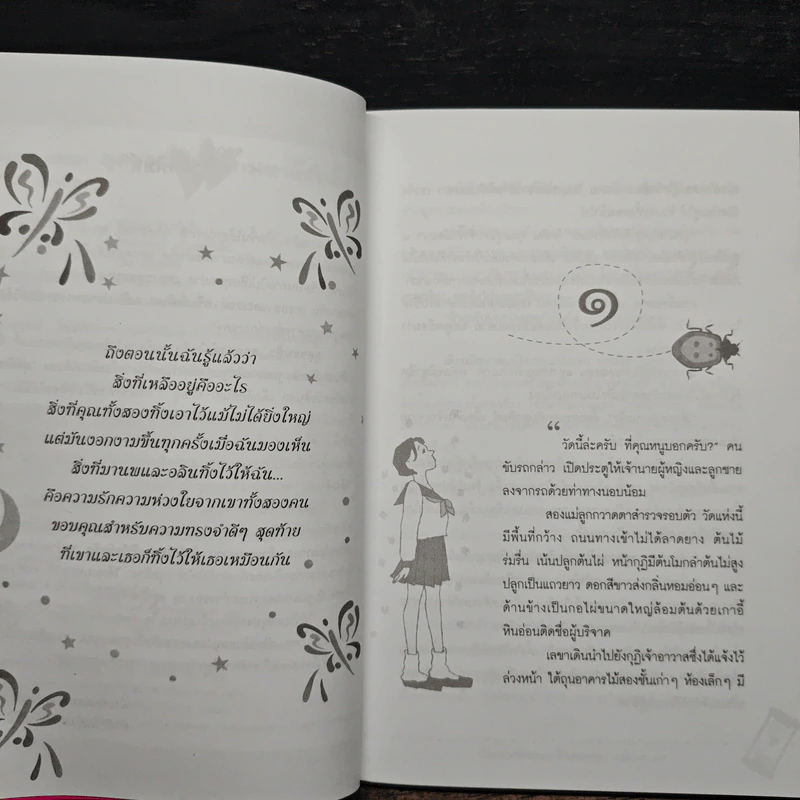 ถึงตอนนั้นฉันรู้แล้วว่า
สิ่งที่เหลืออยู่คืออะไร
สิ่งที่คุณทั้งสองทิ้งเอาไว้แม้ไม่ได้ยิ่งใหญ่
แต่มันงอกงามขึ้นทุกครั้งเมื่อฉันมองเห็น
สิ่งที่มานพและอลินทิ้งไว้ให้ฉัน...
คือความรักความห่วงใยจากเขาทั้งสองคน
ขอบคุณสำหรับความทรงจำดีๆ สุดท้าย
ที่เขาและเธอก็ทิ้งไว้ให้เธอเหมือนกัน
๑
“
วัดนี้ล่ะครับ ที่คุณหนูบอกครับ?” คน
ขับรถกล่าว เปิดประตูให้เจ้านายผู้หญิงและลูกชาย
ลงจากรถด้วยท่าทางนอบน้อม
สองแม่ลูกกวาดตาสำรวจรอบตัว วัดแห่งนี้
มีพื้นที่กว้าง ถนนทางเข้าไม่ได้ลาดยาง ต้นไม้
ร่มรื่น เน้นปลูกต้นไผ่ หน้ากุฏิมีต้นโมกลำต้นไม่สูง
ปลูกเป็นแถวยาว ดอกสีขาวส่งกลิ่นหอมอ่อนๆ และ
ด้านข้างเป็นกอไผ่ขนาดใหญ่ล้อมต้นด้วยเก้าอี้
หินอ่อนติดชื่อผู้บริจาค
เลขาเดินนำไปยังกุฏิเจ้าอาวาสซึ่งได้แจ้งไว้
ล่วงหน้า ใต้ถุนอาคารไม้สองชั้นเก่าๆ ห้องเล็กๆ มี